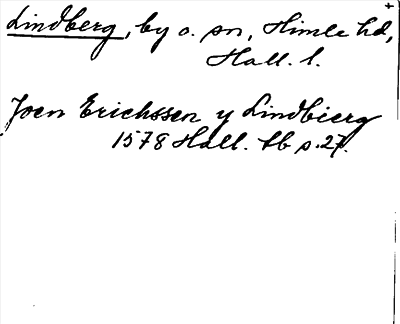 Lindberg, by o. sn, Himle hd,
Hall. l.
Joen Erichssen y Lindbierg
1578 Hall. tb s. 27.